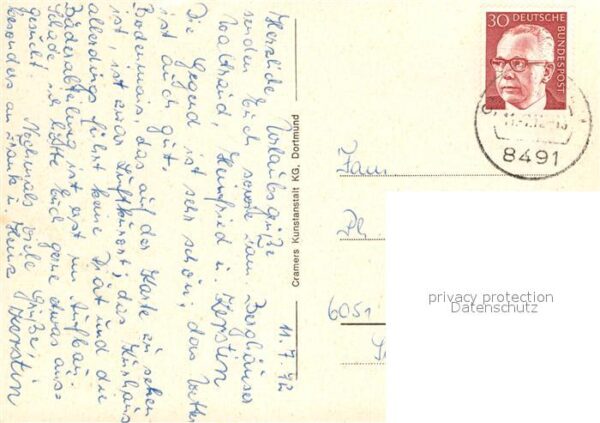 11.7.72
Herzliche Urlaubsgrüße
senden Euch sowie Fam. Berghäuser
Waltraud, Heinfried u. Kerstin
Die Gegend ist sehr schön, das Wetter
ist auch gut.
Bodenmais, das auf der Karte zu sehen
ist, ist zwar Luftkurort; das Kurhaus
allerdings führt keine Diät und die
Bäderabteilung ist erst im Aufbau.
Schade, ich hätte Euch gerne etwas aus-
gesucht.
Nochmals viele Grüße,
besonders an Frank u. Heinz
Kerstin
Cramers Kunstanstalt KG, Dortmund
30 DEUTSCHE
BUNDESPOST
8491
Fam.
6051
privacy protection
Datenschutz